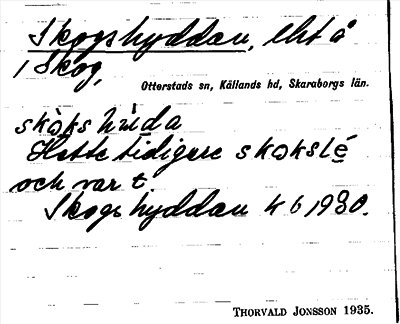 Skogshyddan, lht å
1 Skog,
Otterstads sn, Kållands hd, Skaraborgs län.
skòks hùda
Hette tidigare skokslé
och var t.
Skogshyddan 4 6 1930.
THORVALD JONSSON 1935.